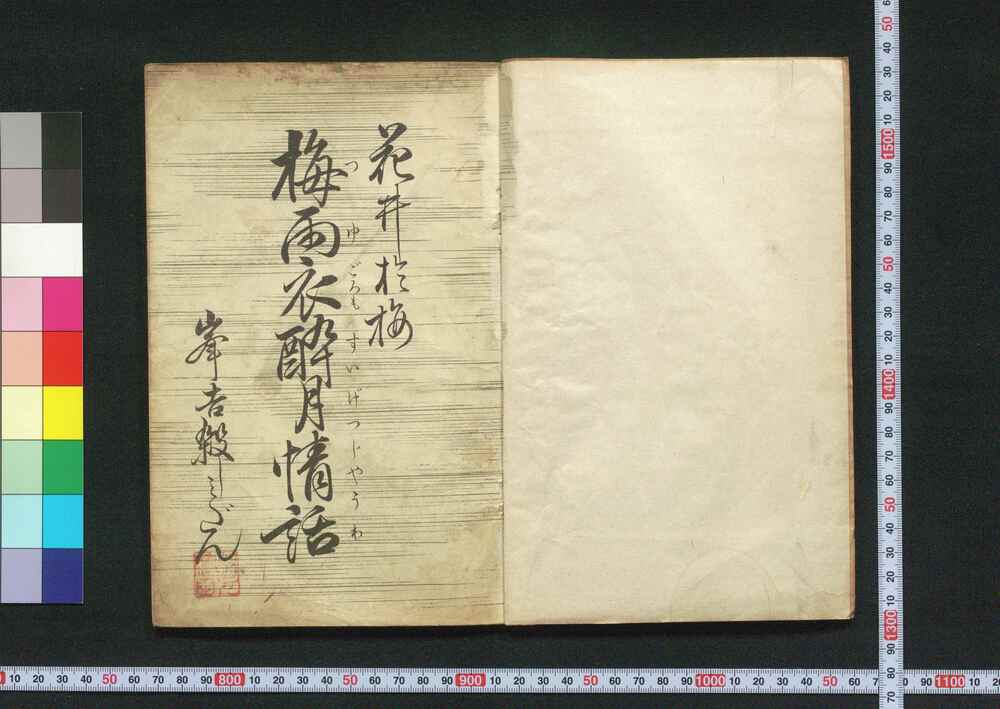 花井於梅
梅雨衣酔月情話
つゆごろもすいげつじやうわ
峯吉殺しの
10 20 30 40 50 60 70 80 90 800 10 20 30 40 50 60 70 80 90 900 10 20 30 40 50 60 70 80 90 1000 10 20 30 40 50 60 70 80 90 1100 10
50 40 30 20 10 1500 90 80 70 60 50 40 30 20 10 1400 90 80 70 60 50 40 30 20 10 1300 90 80 70